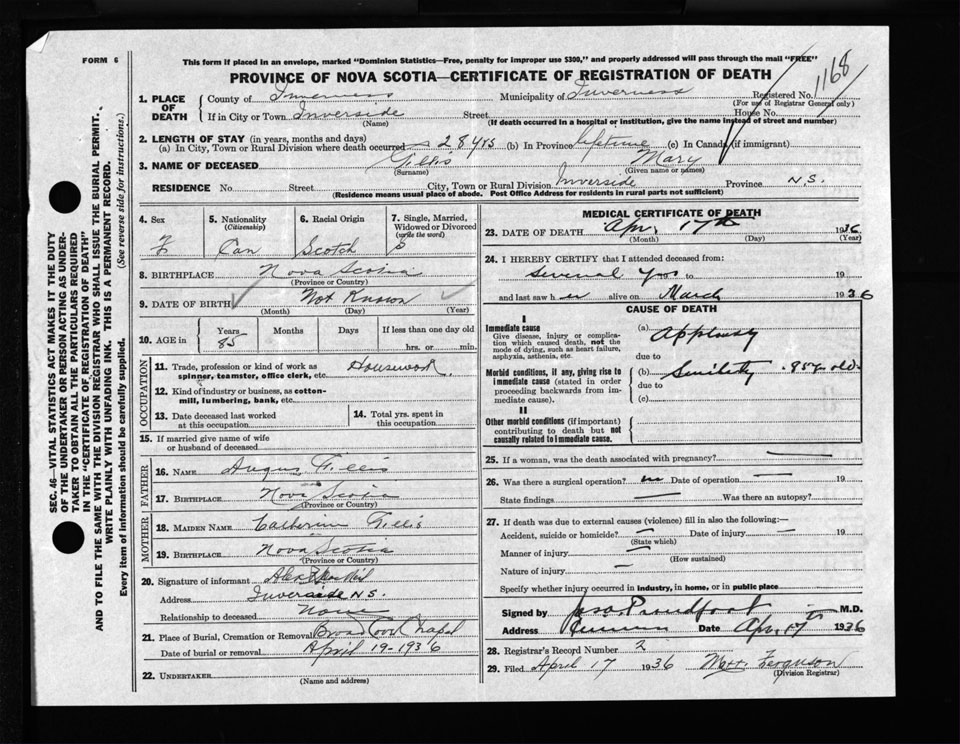 FORM 6
This form if placed in an envelope, marked "Dominion Statistics—Free, penalty for improper use $300," and properly addressed will pass through the mail "FREE"
PROVINCE OF NOVA SCOTIA—CERTIFICATE OF REGISTRATION OF DEATH
1168
1. PLACE OF DEATH County of Inverness Municipality of Inverness Registered No.
(For use of Registrar General only)
If in City or Town Inverside Street House No.
(Name) (If death occurred in a hospital or institution, give the name instead of street and number)
2. LENGTH OF STAY (in years, months and days)
(a) In City, Town or Rural Division where death occurred 28 yrs (b) In Province lifetime (c) In Canada (if immigrant)
3. NAME OF DECEASED Gillis Mary
(Surname) (Given name or names)
RESIDENCE No. Street City, Town or Rural Division Inverside Province N.S.
(Residence means usual place of abode. Post Office Address for residents in rural parts not sufficient)
4. Sex 5. Nationality (Citizenship) 6. Racial Origin 7. Single, Married, Widowed or Divorced (write the word)
F Can Scotch S
8. BIRTHPLACE Nova Scotia
(Province or Country)
9. DATE OF BIRTH Not Known
(Month) (Day) (Year)
10. AGE in Years Months Days If less than one day old
85 hrs. or min.
OCCUPATION
11. Trade, profession or kind of work as spinner, teamster, office clerk, etc. Housework.
12. Kind of industry or business, as cotton-mill, lumbering, bank, etc.
13. Date deceased last worked at this occupation
14. Total yrs. spent in this occupation
15. If married give name of wife or husband of deceased
FATHER
16. NAME Angus Gillis
17. BIRTHPLACE Nova Scotia
(Province or Country)
MOTHER
18. MAIDEN NAME Catherine Gillis
19. BIRTHPLACE Nova Scotia
(Province or Country)
20. Signature of informant Alex
Address Inverside N.S.
Relationship to deceased None
21. Place of Burial, Cremation or Removal Broad Cove Chapel
Date of burial or removal April 19 - 1936
22. UNDERTAKER
(Name and address)
MEDICAL CERTIFICATE OF DEATH
23. DATE OF DEATH Apr. 17th 1936
(Month) (Day) (Year)
24. I HEREBY CERTIFY that I attended deceased from:
Several Yrs to 19
and last saw her alive on March 1936
CAUSE OF DEATH
I
Immediate cause
Give disease, injury or complication which caused death, not the mode of dying, such as heart failure, asphyxia, asthenia, etc.
(a) Apploxy
due to
Morbid conditions, if any, giving rise to immediate cause (stated in order proceeding backwards from immediate cause).
(b) Senility . 85 yr old.
due to
(c)
II
Other morbid conditions (if important) contributing to death but not causally related to immediate cause.
25. If a woman, was the death associated with pregnancy? —
26. Was there a surgical operation? no Date of operation — 19
State findings — Was there an autopsy? —
27. If death was due to external causes (violence) fill in also the following:—
Accident, suicide or homicide? — Date of injury — 19
(State which)
Manner of injury —
(How sustained)
Nature of injury —
Specify whether injury occurred in industry, in home, or in public place
Signed by Jno. Proudfoot M.D.
Address Date Apr. 17th 1936
28. Registrar's Record Number 2
29. Filed April 17 1936 Ferguson
(Division Registrar)
SEC. 46—VITAL STATISTICS ACT MAKES IT THE DUTY
OF THE UNDERTAKER OR PERSON ACTING AS UNDER-
TAKER TO OBTAIN ALL THE PARTICULARS REQUIRED
IN THE "CERTIFICATE OF REGISTRATION OF DEATH"
AND TO FILE THE SAME WITH THE DIVISION REGISTRAR WHO SHALL ISSUE THE BURIAL PERMIT.
WRITE PLAINLY WITH UNFADING INK. THIS IS A PERMANENT RECORD.
Every item of information should be carefully supplied. (See reverse side for instructions.)